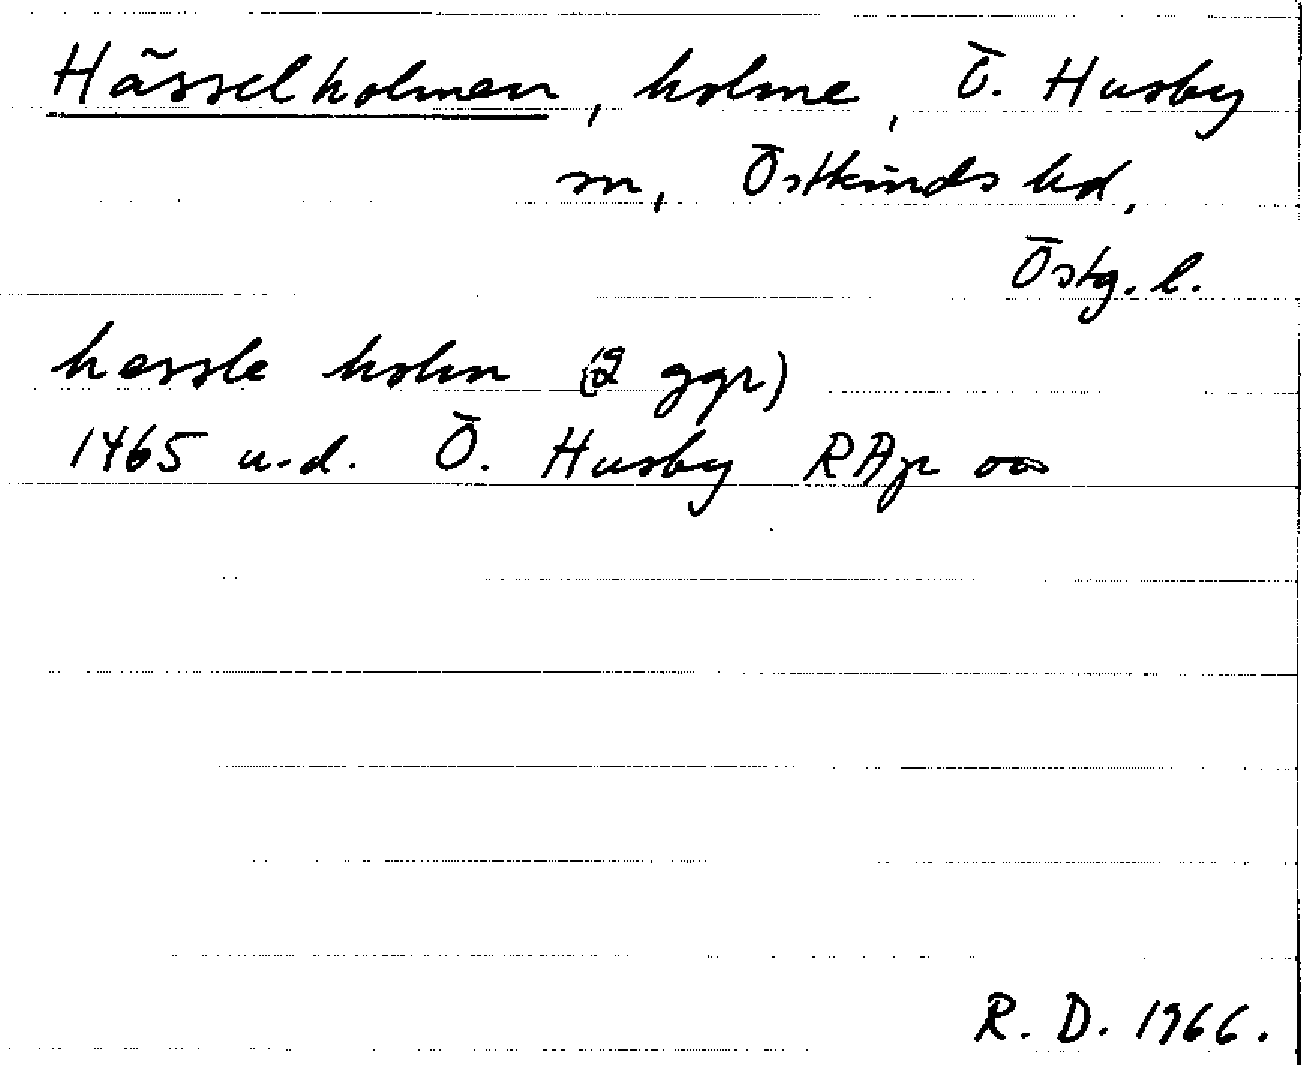 Hässelholmen, holme, Ö. Husby
sn, Östkinds hd,
Östg. l.
hessle holm (2 ggr)
1465 u.d. Ö. Husby RAp or
R. D. 1966.